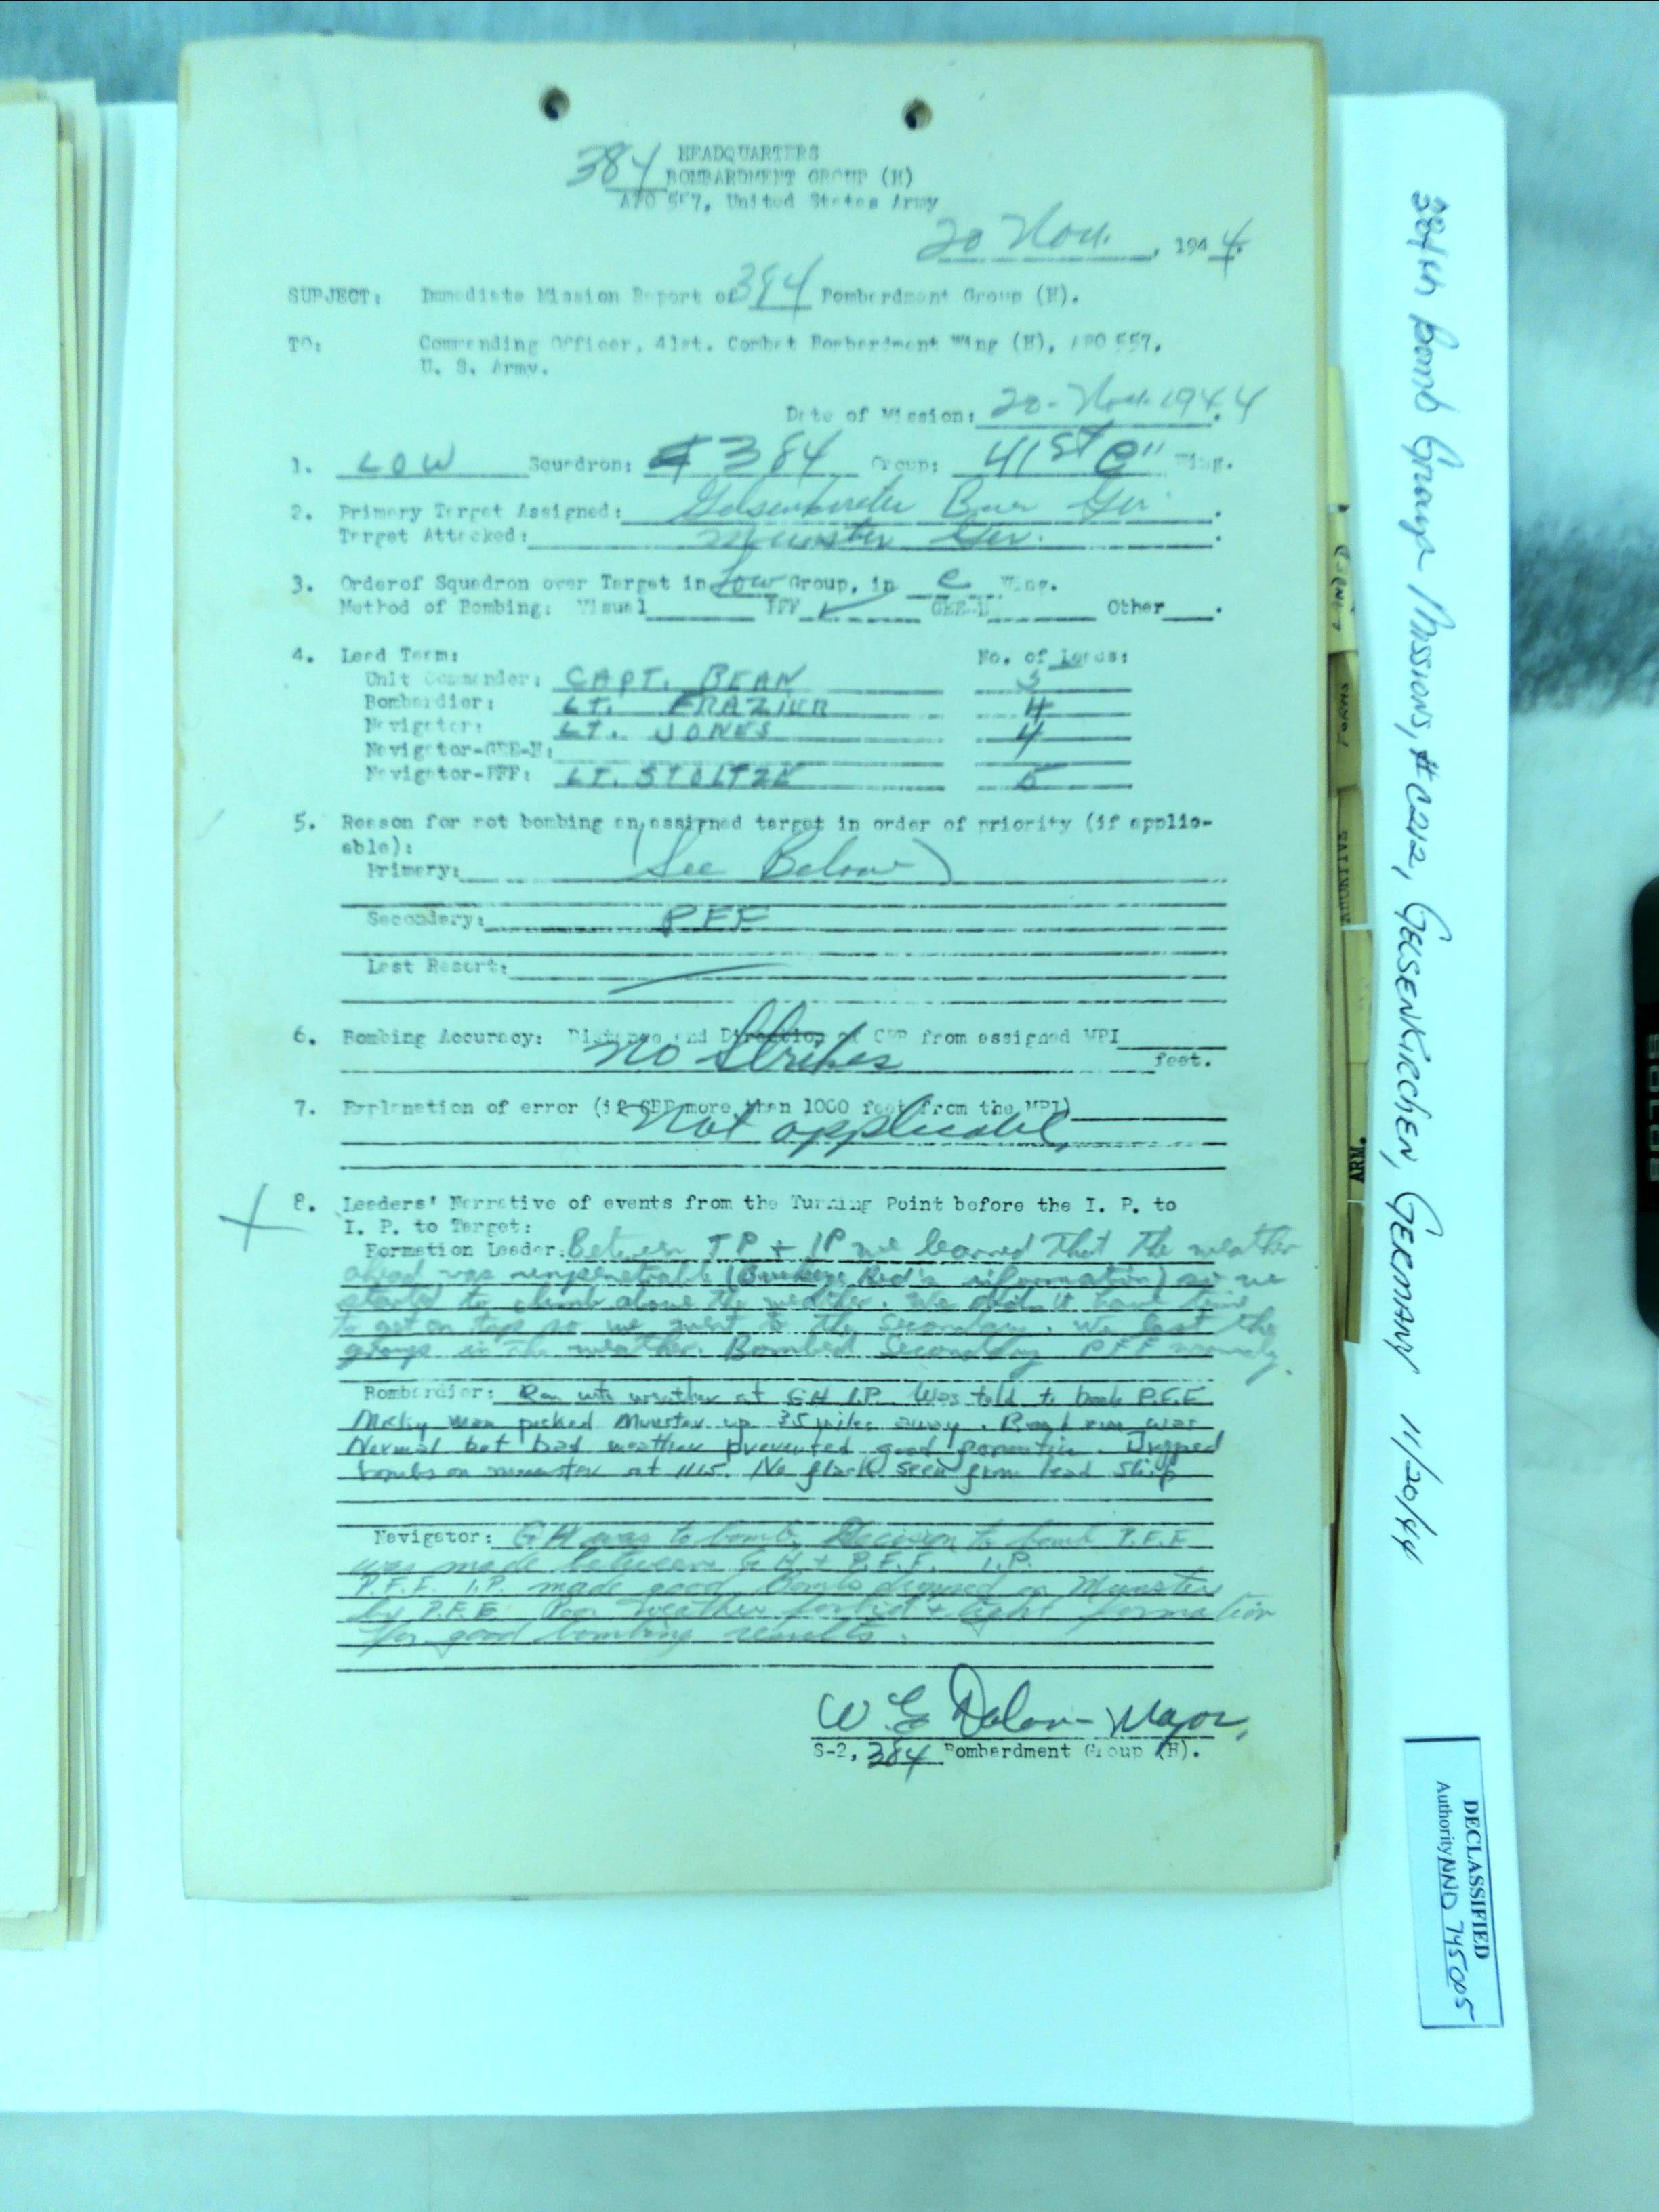 HEADQUARTERS
384 BOMBARDMENT GROUP (H)
APO 557, United States Army
20 Nov. , 1944.
SUBJECT: Immediate Mission Report of 384 Bombardment Group (H).
TO: Commanding Officer, 41st. Combat Bombardment Wing (H), APO 557,
U. S. Army.
Date of Mission: 20-Nov. 1944.
1. LOW Squadron: 384 Group: 41st "C" Wing.
2. Primary Target Assigned: Ger.
Target Attacked: Munster Ger.
3. Order of Squadron over Target in Low Group, in C Wing.
Method of Bombing: Visual PFF ✓ GEE-H Other .
4. Lead Team: No. of Leads:
Unit Commander: CAPT. BEAN 3
Bombardier: LT. FRAZIER 4
Navigator: LT. JONES 4
Navigator-GEE-H:
Navigator-PFF: LT. STOLTZE 5
5. Reason for not bombing an assigned target in order of priority (if applic-
able):
Primary: (See Below)
Secondary: PFF
Last Resort:
6. Bombing Accuracy: Distance and Direction of CBP from assigned MPI
No Strikes feet.
7. Explanation of error (if CBP more than 1000 feet from the MPI)
Not applicable
8. Leaders' Narrative of events from the Turning Point before the I. P. to
I. P. to Target:
Formation Leader: Between TP + IP we learned that the weather
ahead was (Buckeye Red's information) so we
started to climb above the weather. We didn't have time
to get on top so we went to the Secondary. We lost the
group in the weather. Bombed Secondary PFF
Bombardier: Ran into weather at GH I.P. Was told to bomb P.F.F.
Micky man picked Munster up 35 miles away. Bomb run was
Normal but bad weather prevented good formation. Dropped
bombs on munster at 1115. No flack seen from lead ship
Navigator: GH was to bomb. Decision to bomb P.F.F.
was made between G.H. + P.F.F. I.P.
P.F.F. I.P. made good. Bombs dropped on Munster
by P.F.F. Poor weather tight formation
for good bombing results.
W E Dolan - Major,
S-2, 384 Bombardment Group (H).
384th Bomb Group Missions, #C212, GELSENKIRCHEN, GERMANY 11/20/44
ARM.
DECLASSIFIED
Authority NND 745005